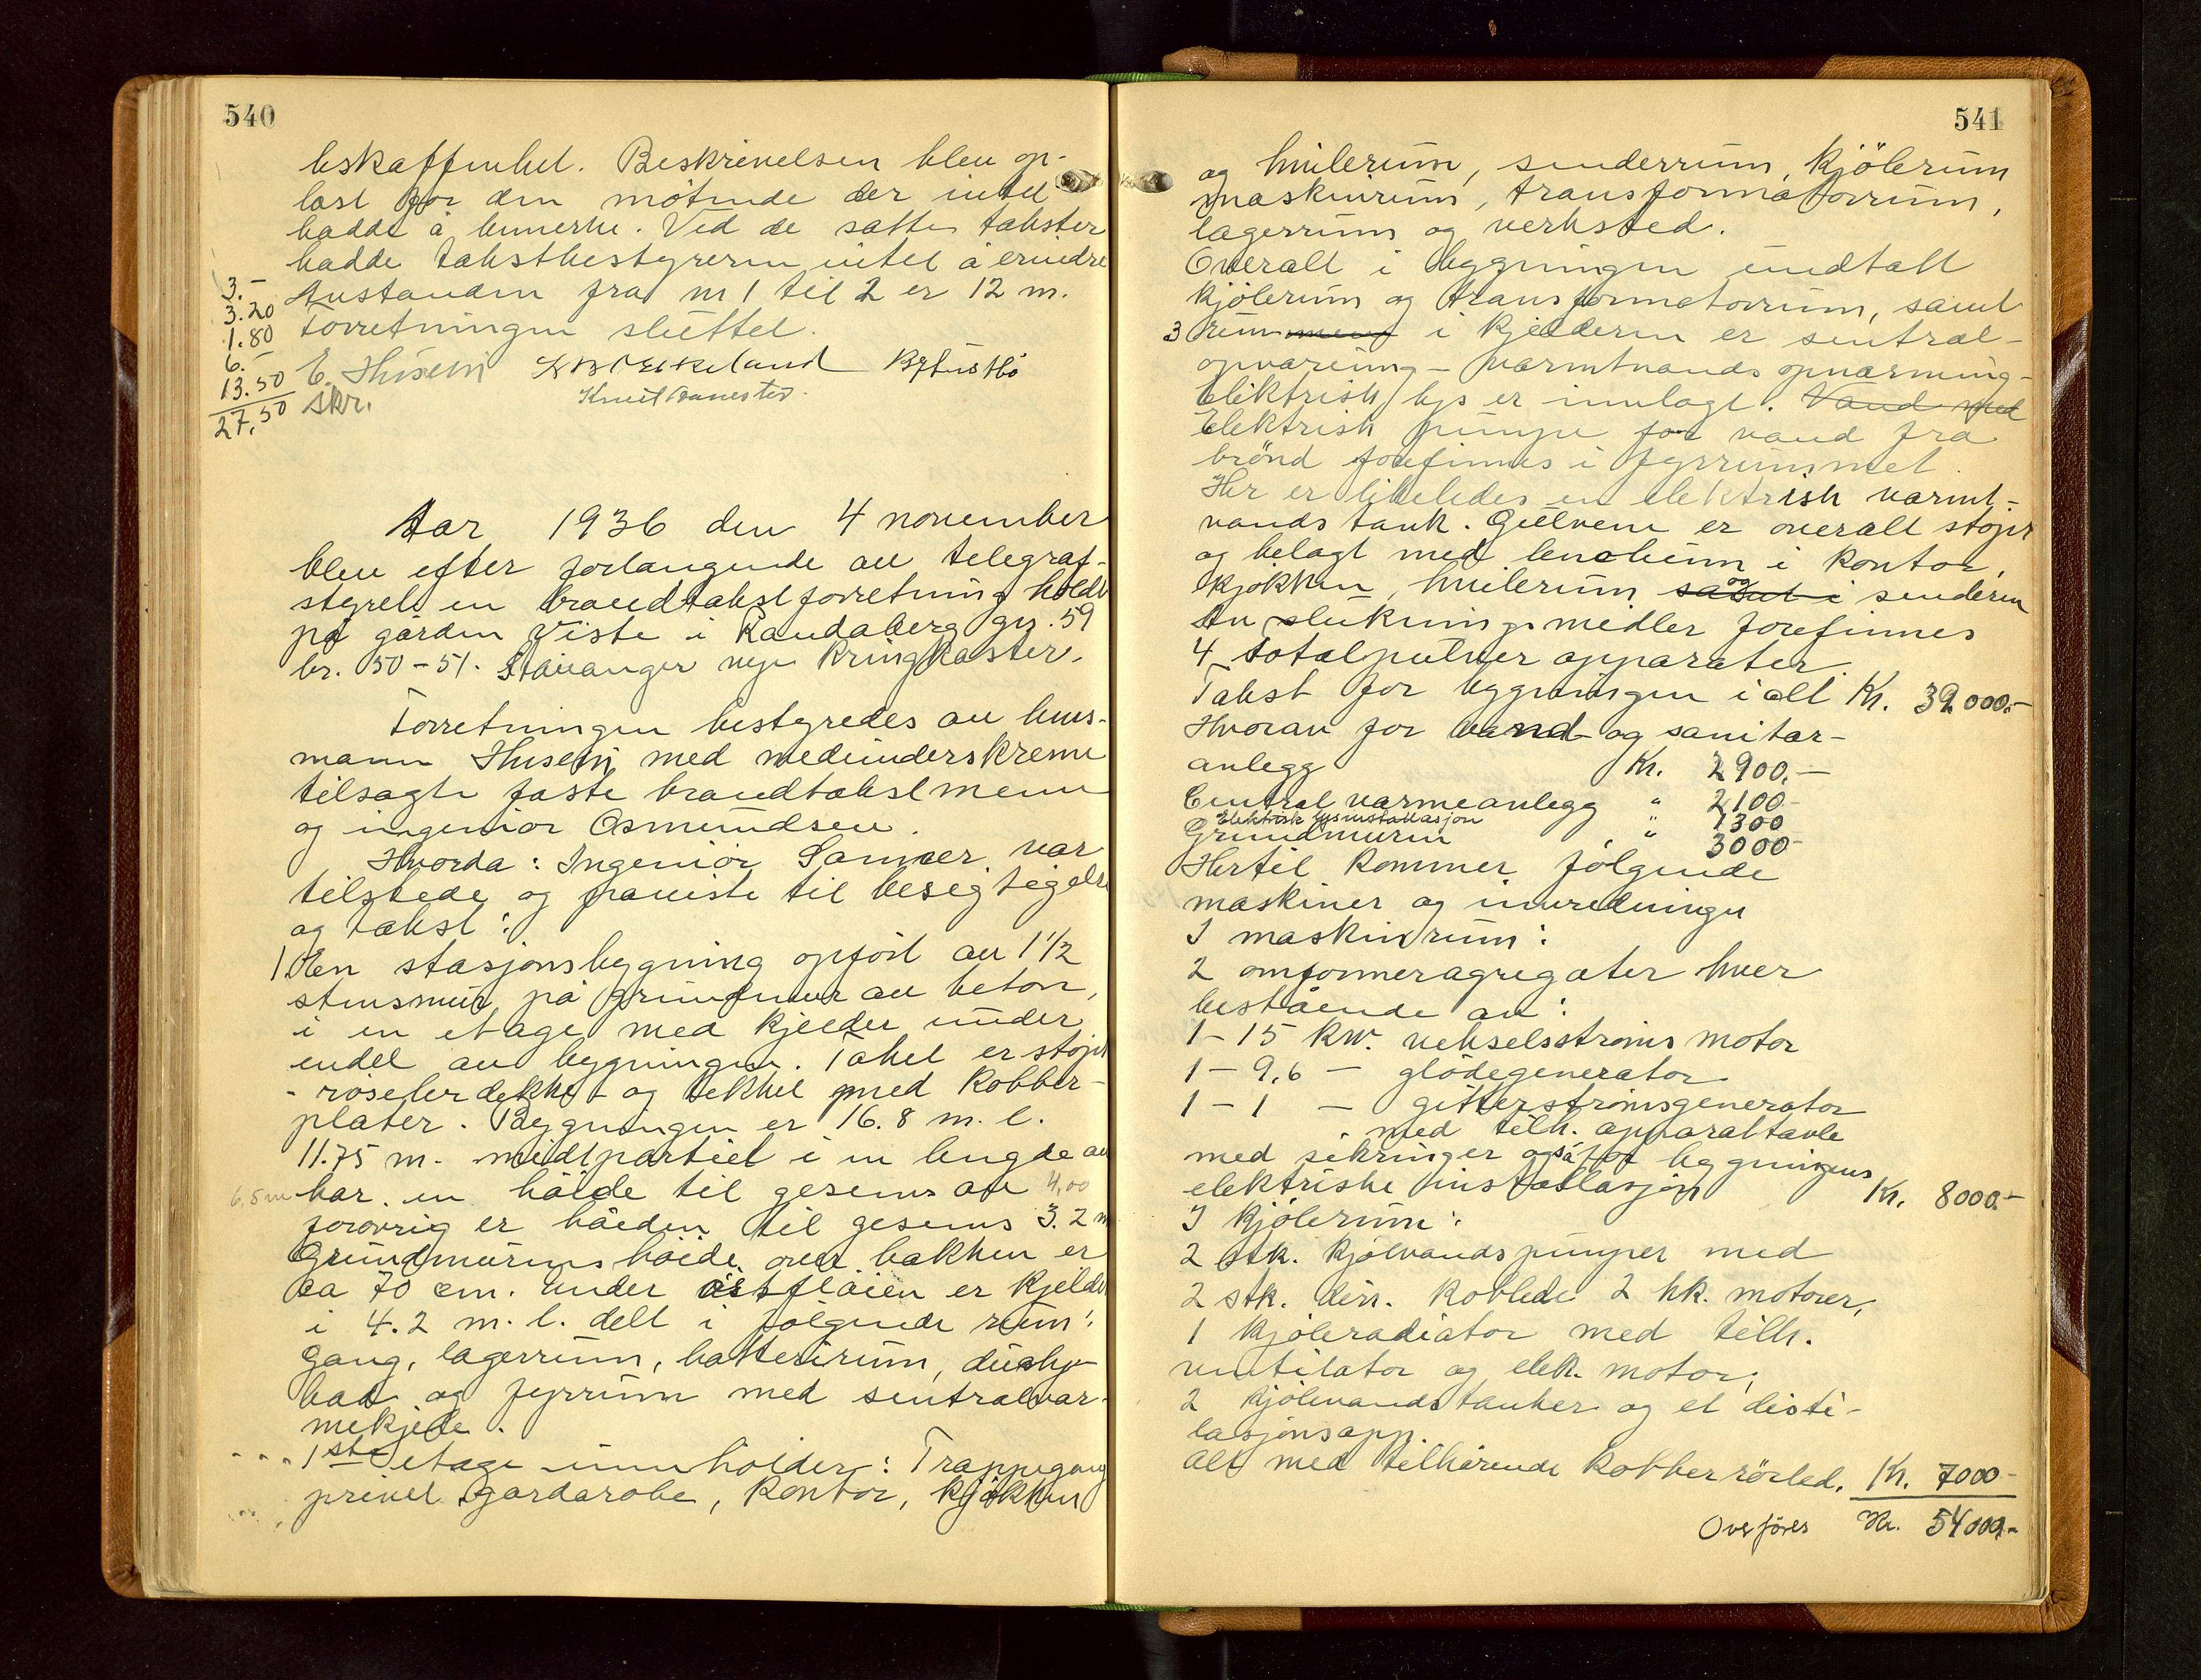 540
beskaffenhet. Beskrivelsen blev op-
læst for den møtende der intet
hadde å bemerke. Ved de satte takster
hadde takstbestyreren intet å erindre
Avstanden fra nr 1 til 2 er 12 m.
Forretningen sluttet.
3.-
3.20
1.80
6.-
13.50
27,50
E. Husebø
skr.
Aar 1936 den 4 november
blev efter forlangende av telegraf-
styret en brandtakstforretning holdt
på gården Viste i Randaberg gr. 59
br. 50-51. Stavanger nye Kringkaster.
Forretningen bestyredes av lens-
mann Husebø med medunderskrevne
tilsagte faste brandtakstmenn
og ingeniør Osmundsen.
Hvorda: Ingeniør Sanner var
tilstede og paaviste til besigtigelse
og takst:
1. En stasjonsbygning opført av 1 1/2
stensmur på grunnmur av beton,
i en etage med kjelder under
endel av bygningen. Taket er støpt
- roselerdekke - og tekket med kobber-
plater. Bygningen er 16.8 m. l.
11.75 m. midtpartiet i en lengde av
6,5 m har en høide til gesims av 4,00
forøvrig er høiden til gesims 3.2 m
Grundmurens høide over bakken er
ca 70 cm. Under østfløien er kjelder
i 4.2 m. l. delt i følgende rum:
Gang, lagerrum, batterirum, dusj-
bad og fyrrum med sentralvar-
mekjele.
1ste etage inneholder: Trappegang
privet garderobe, kontor, kjøkken
541
og hvilerum, senderrum, kjölerum
maskinrum, transformatorrum,
lagerrum og verksted.
Overalt i bygningen undtatt
kjølerum og transformatorrum, samt
3 rum mene i kjelderen er sentral-
opvarming - varmtvands opvarming -
Elektrisk lys er innlagt. Vand med
Elektrisk pumpe for vand fra
brønd forefinnes i fyrrummet.
Her er likeledes en elektrisk varmt-
vands tank. Gulvene er overalt støpt
og belagt med linoleum i kontor,
kjøkken, hvilerum samt i og senderen
Av slukningsmidler forefinnes
4 totalpulver apparater.
Takst for bygningen i alt Kr. 39.000.-
Hvorav for vand og sanitær-
anlegg Kr. 2900.-
Central varmeanlegg " 2100-
Elektrisk lysinstallasjon " 1300
Grundmuren " 3000-
Hertil kommer følgende
maskiner og innredninger
I maskinrum:
2 omformeragregater hver
bestående av:
1-15 kw. vekselsstrøms motor
1-9,6 - glødegenerator
1-1 - gitterstrømsgenerator
med tilh. apparattavle
med sikringer også for bygningens
elektriske installasjon Kr. 8000.-
I kjølerum:
2 stk. kjølvandspumper med
2 stk. dirr. koblede 2 hk. motorer,
1 kjøleradiator med tilh.
ventilator og elek. motor,
2 kjølevandstanker og et disti-
lasjonsapp.
Alt med tilhørende kobber rørled. Kr. 7000-
Overføres Kr. 54000,-